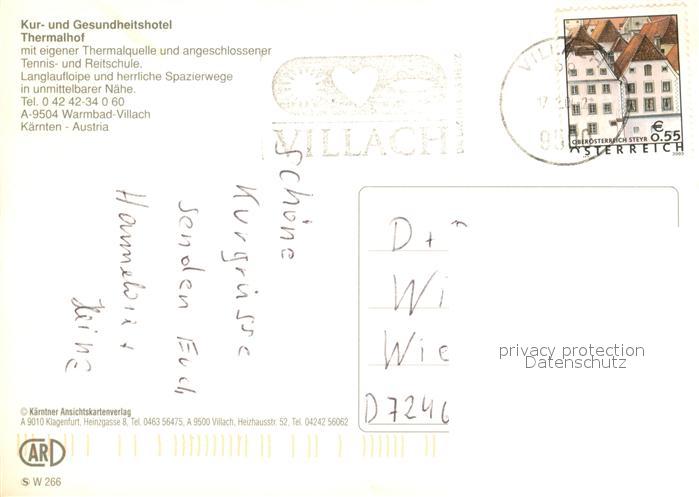 Kur- und Gesundheitshotel
Thermalhof
mit eigener Thermalquelle und angeschlossener
Tennis- und Reitschule.
Langlaufloipe und herrliche Spazierwege
in unmittelbarer Nähe.
Tel. 0 42 42-34 0 60
A-9504 Warmbad-Villach
Kärnten - Austria
VILLACH
VILLACH
€
0.55
OBERÖSTERREICH STEYR
ÖSTERREICH
2003
Schöne
Kurgrüsse
senden Euch
Hannelore +
Heinz
D +
Wi
Wie
D 7246
privacy protection
Datenschutz
© Kärntner Ansichtskartenverlag
A 9010 Klagenfurt, Heinzgasse 8, Tel. 0463 56475, A 9500 Villach, Heizhausstr. 52, Tel. 04242 56062
CARD
Ⓢ W 266